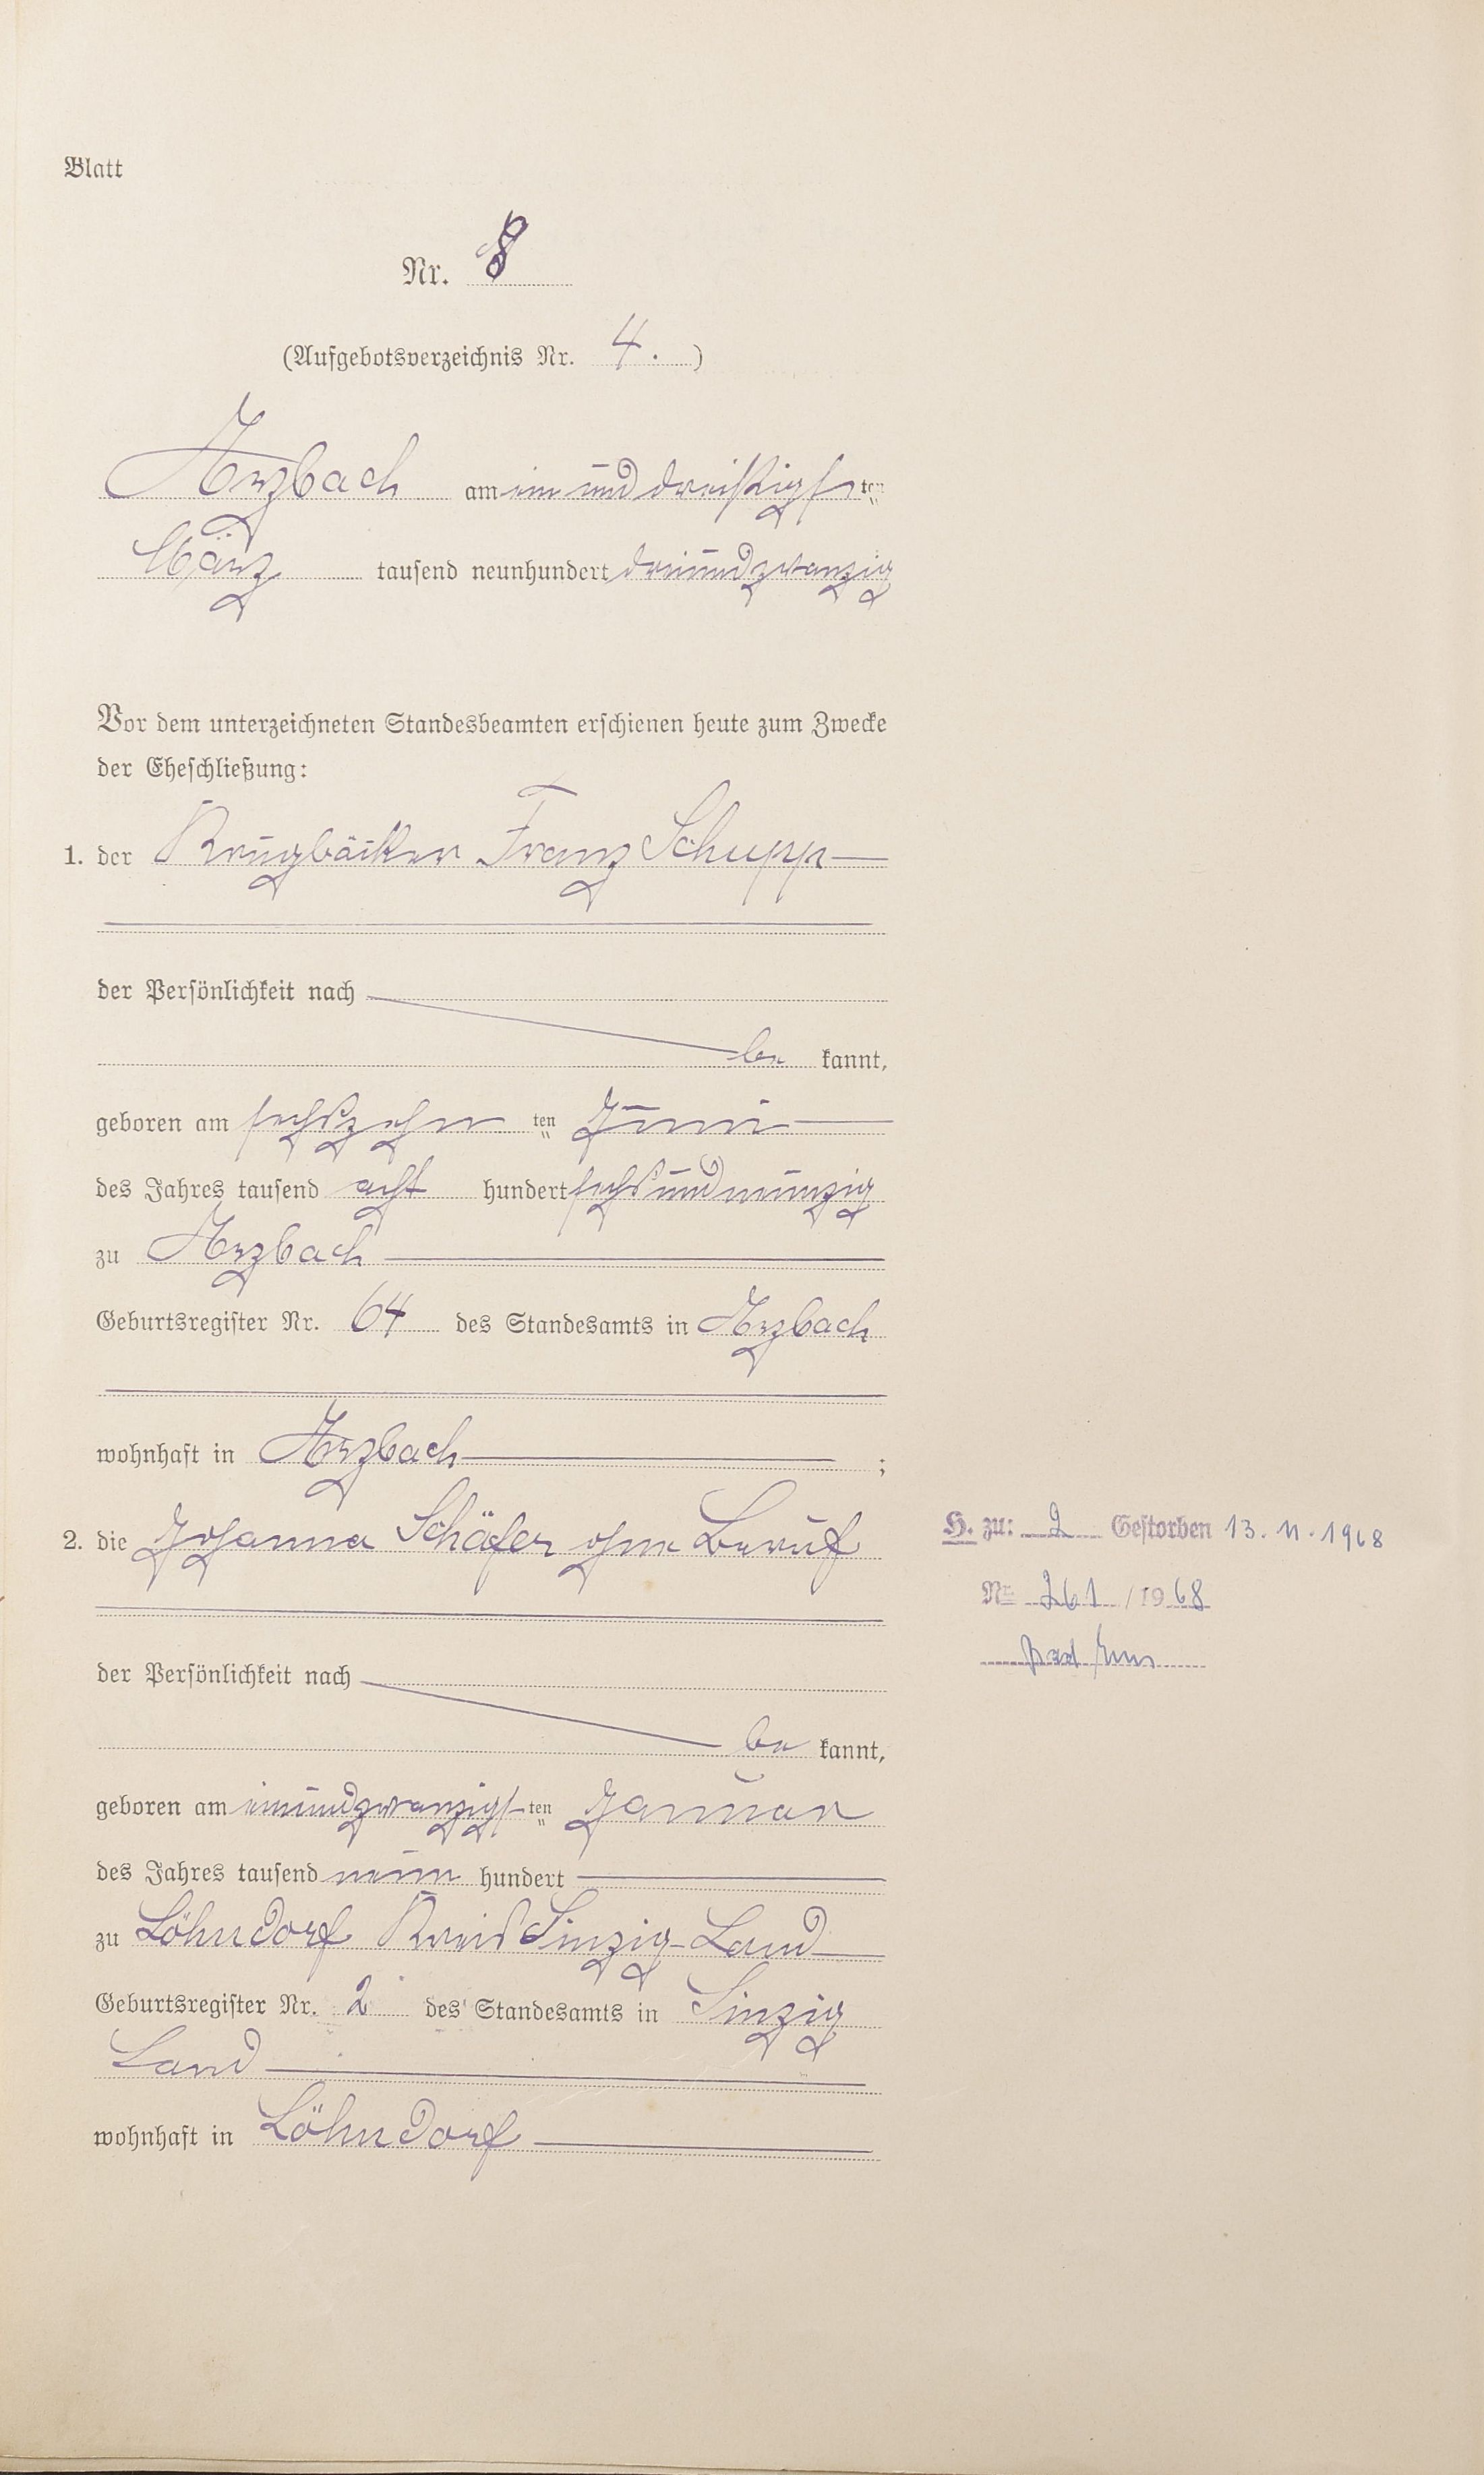 Blatt
Nr. 8
(Aufgebotsverzeichnis Nr. 4. )
Arzbach am ein und dreißigs ten
März tausend neunhundert dreiundzwanzig
Vor dem unterzeichneten Standesbeamten erschienen heute zum Zwecke
der Eheschließung:
1. der Krugbäcker Franz Schupp
der Persönlichkeit nach
be kannt,
geboren am sechszehn ten Juni
des Jahres tausend acht hundert sechsundneunzig
zu Arzbach
Geburtsregister Nr. 64 des Standesamts in Arzbach
wohnhaft in Arzbach ;
2. die Johanna Schäfer ohne Beruf
H. zu: 2 Gestorben 13. 11. 1968
Nr. 261 / 1968
Bad Ems
der Persönlichkeit nach
be kannt,
geboren am einundzwanzigs ten Januar
des Jahres tausend neun hundert
zu Löhndorf Kreis Sinzig-Land
Geburtsregister Nr. 2 des Standesamts in Sinzig
Land
wohnhaft in Löhndorf